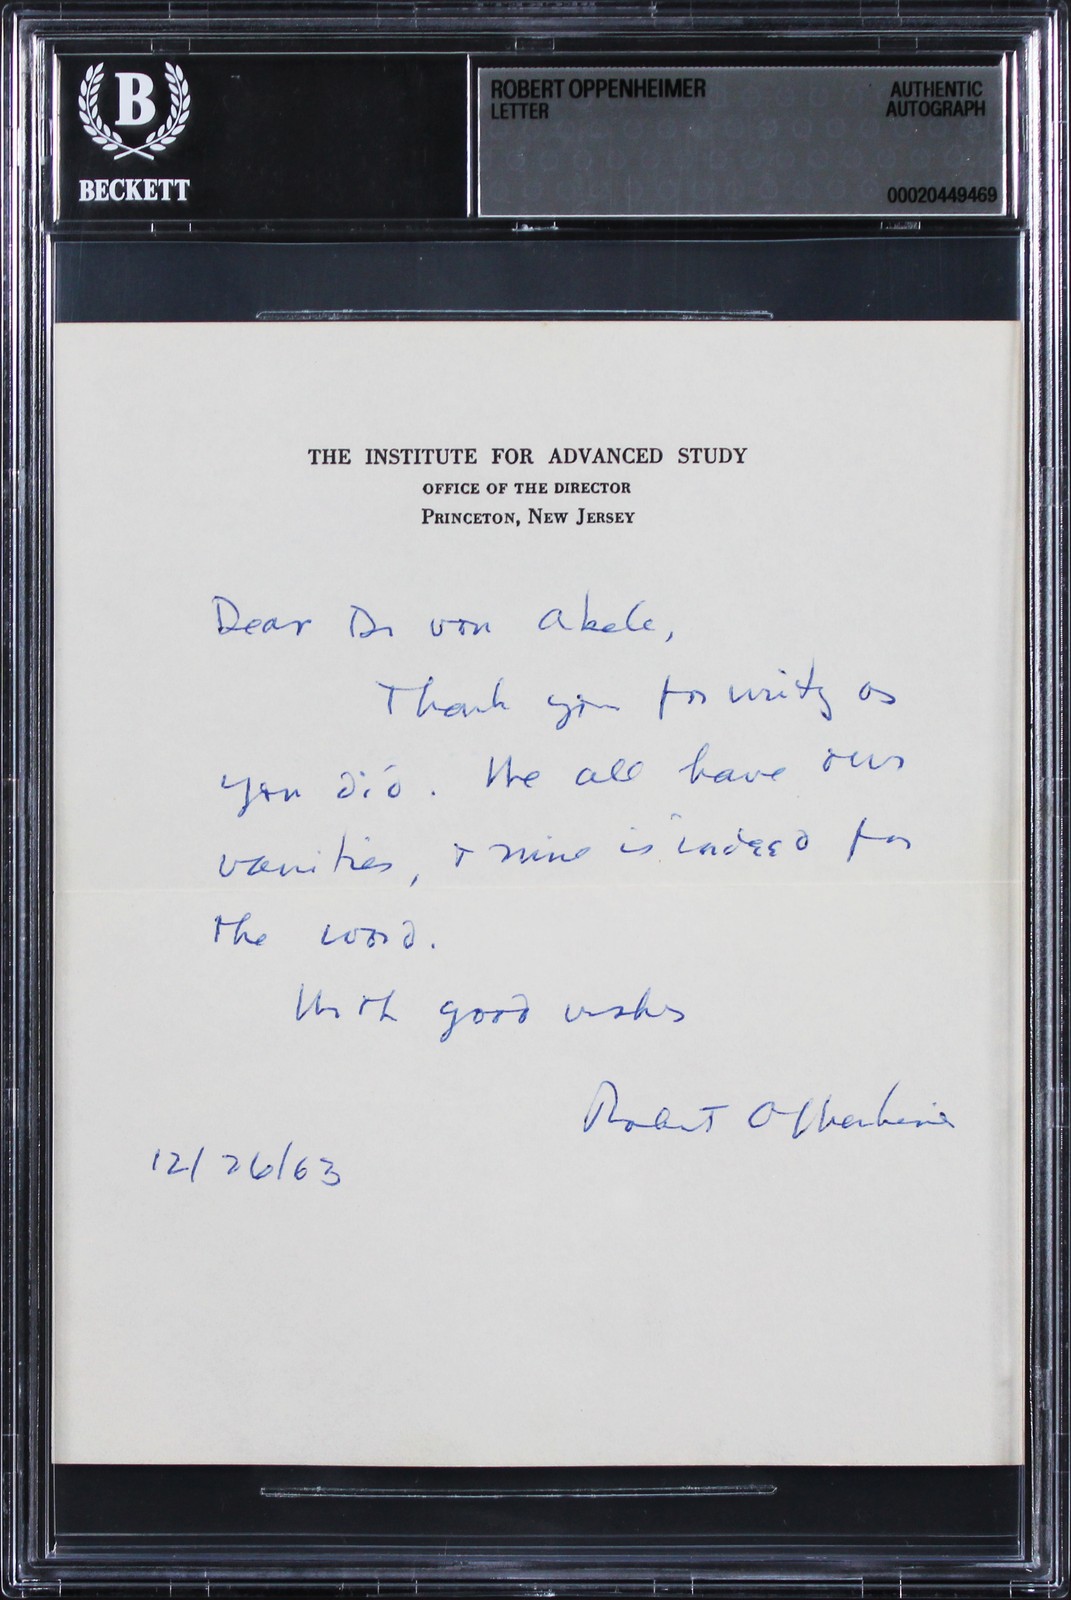 B
BECKETT
ROBERT OPPENHEIMER
LETTER
AUTHENTIC
AUTOGRAPH
00020449469
THE INSTITUTE FOR ADVANCED STUDY
OFFICE OF THE DIRECTOR
PRINCETON, NEW JERSEY
Dear Dr von Abele,
Thank you for writing as
you did. We all have our
vanities, + mine is indeed for
the word.
With good wishes
Robert Oppenheimer
12/26/63